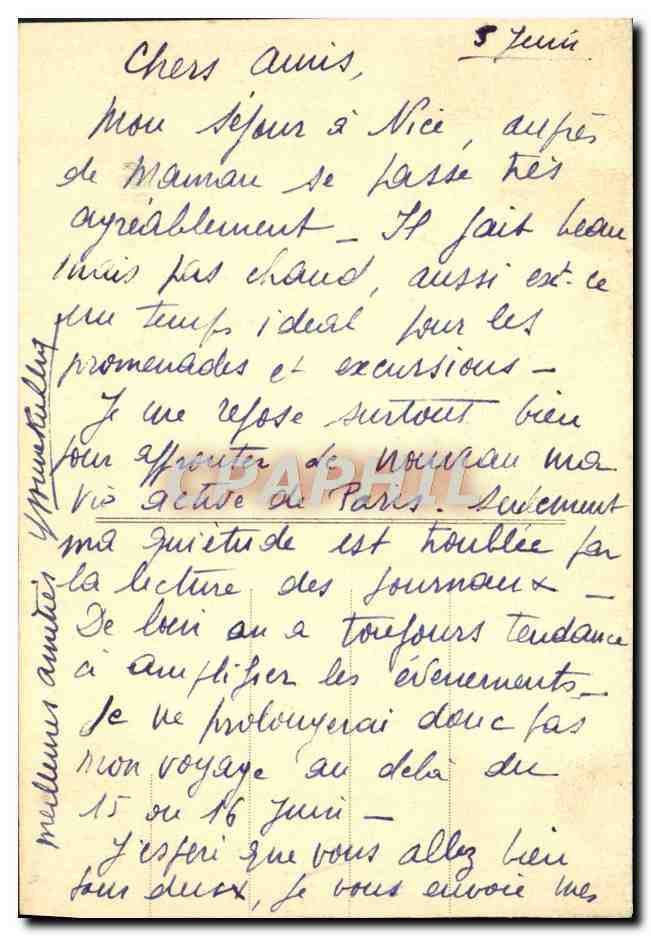 5 Juin
Chers amis,
Mon séjour à Nice, auprès
de Maman se passe très
agréablement - Il fait beau
mais pas chaud, aussi est-ce
un temps idéal pour les
promenades et excursions -
Je me repose surtout bien
pour affronter de nouveau ma
vie active de Paris. Seulement
ma quiétude est troublée par
la lecture des journaux -
De loin on a toujours tendance
à amplifier les évènements -
Je ne prolongerai donc pas
mon voyage au delà du
15 ou 16 Juin -
J'espère que vous allez bien
tous deux, je vous envoie mes
meilleures amitiés Yvonne
CPAPHIL